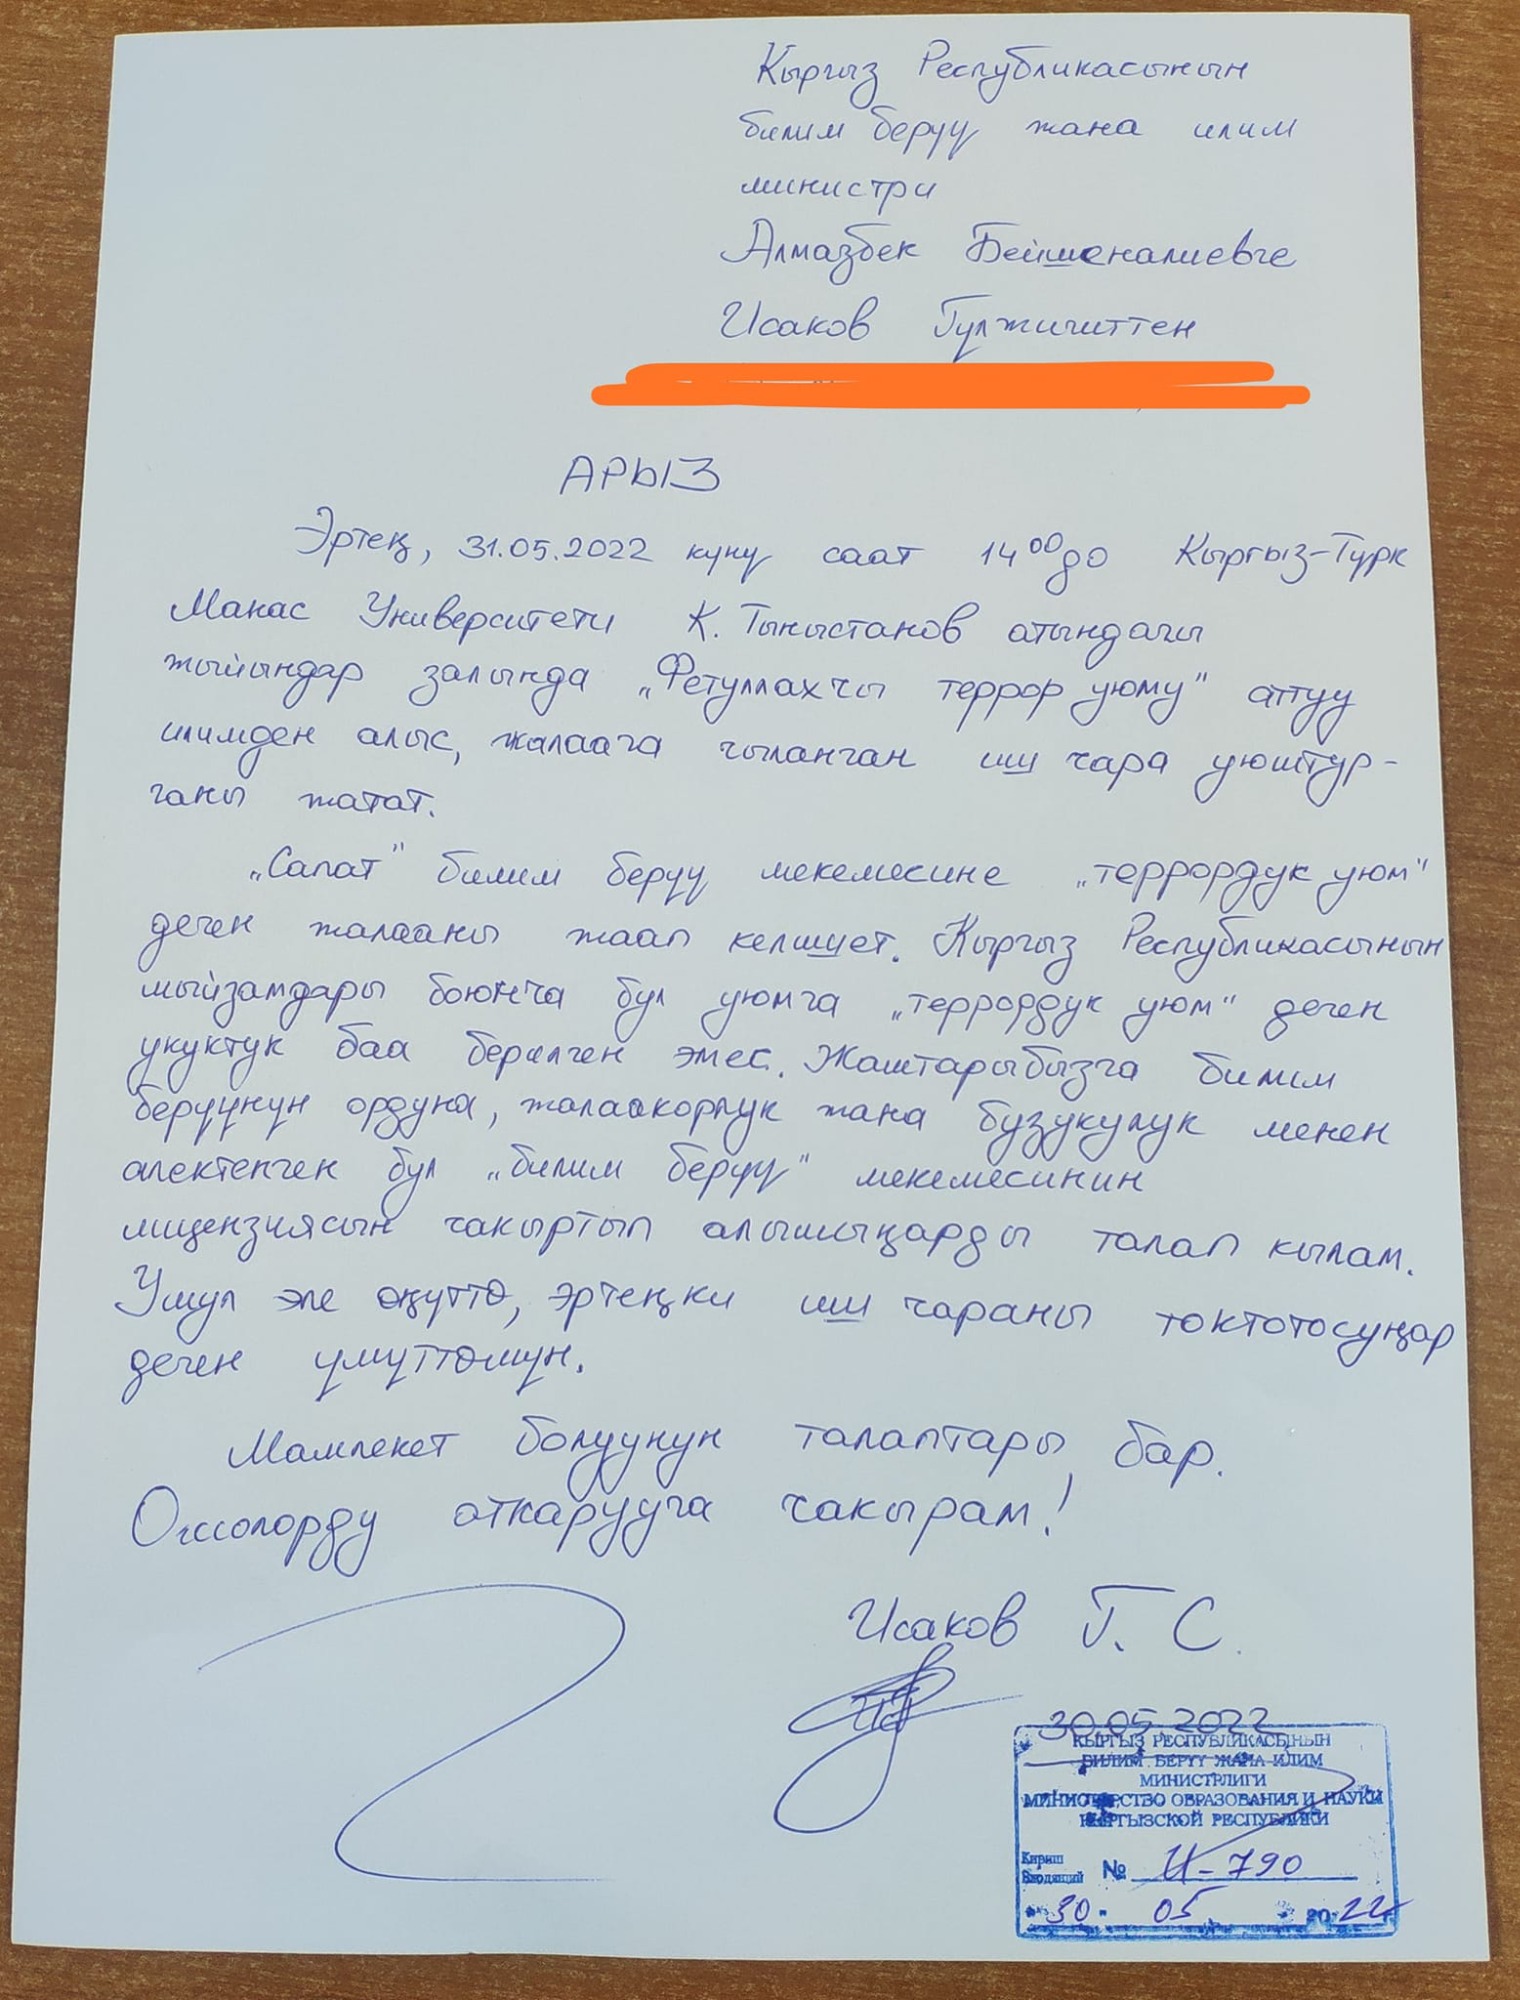 Кыргыз Республикасынын
билим берүү жана илим
министри
Алмазбек Бейшеналиевге
Исаков Гүлжигиттен
АРЫЗ
Эртең, 31.05.2022 күнү саат 14 00 до Кыргыз-Түрк
Манас Университети К. Тыныстанов атындагы
жыйындар залында „Фетуллахчы террор уюму" аттуу
илимден алыс, жалаага чыланган иш чара уюштур-
ганы жатат.
„Сапат" билим берүү мекемесине „террордук уюм"
деген жалааны жаап келишет. Кыргыз Республикасынын
мыйзамдары боюнча бул уюмга „террордук уюм" деген
укуктук баа берилген эмес. Жаштарыбызга билим
берүүнүн ордуна, жалаакорлук жана бузукулук менен
алектенген бул „билим берүү" мекемесинин
лицензиясын чакыртып алышыңарды талап кылам.
Ушул эле өңүттө, эртеңки иш чараны токтотосуңар
деген үмүттөмүн.
Мамлекет болуунун талаптары бар.
Ошолорду аткарууга чакырам!
Исаков Г. С.
30.05.2022
КЫРГЫЗ РЕСПУБЛИКАСЫНЫН
БИЛИМ БЕРҮҮ ЖАНА ИЛИМ
МИНИСТРЛИГИ
МИНИСТЕРСТВО ОБРАЗОВАНИЯ И НАУКИ
КЫРГЫЗСКОЙ РЕСПУБЛИКИ
Кириш
Входящий № И-790
30 05 2022